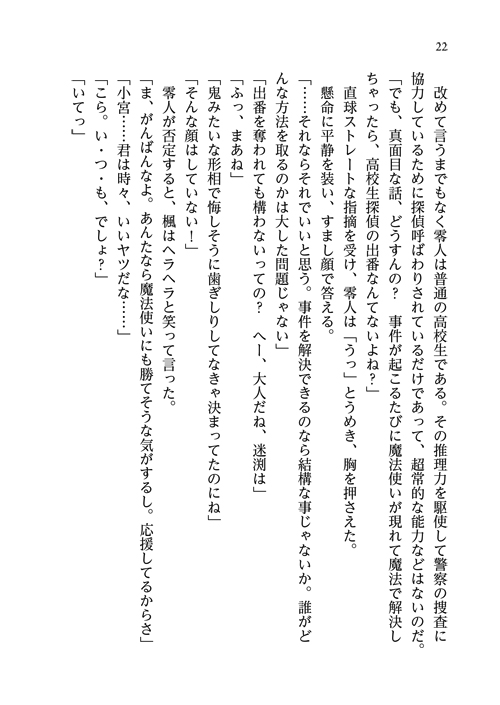 22
　改めて言うまでもなく零人は普通の高校生である。その推理力を駆使して警察の捜査に
協力しているために探偵呼ばわりされているだけであって、超常的な能力などはないのだ。
「でも、真面目な話、どうすんの？　事件が起こるたびに魔法使いが現れて魔法で解決し
ちゃったら、高校生探偵の出番なんてないよね？」
　直球ストレートな指摘を受け、零人は「うっ」とうめき、胸を押さえた。
　懸命に平静を装い、すまし顔で答える。
「……それならそれでいいと思う。事件を解決できるのなら結構な事じゃないか。誰がど
んな方法を取るのかは大した問題じゃない」
「出番を奪われても構わないっての？　へー、大人だね、迷渕は」
「ふっ、まあね」
「鬼みたいな形相で悔しそうに歯ぎしりしてなきゃ決まってたのにね」
「そんな顔はしていない！」
　零人が否定すると、楓はヘラヘラと笑って言った。
「ま、がんばんなよ。あんたなら魔法使いにも勝てそうな気がするし。応援してるからさ」
「小宮……君は時々、いいヤツだな……」
「こら。い・つ・も、でしょ？」
「いてっ」